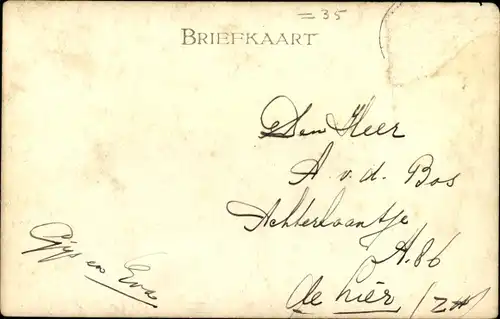 = 35
BRIEFKAART
Den Heer
A. v. d. Bos
Achterlaantje
A. 86
de Lier (ZH)
Gijs en Eva